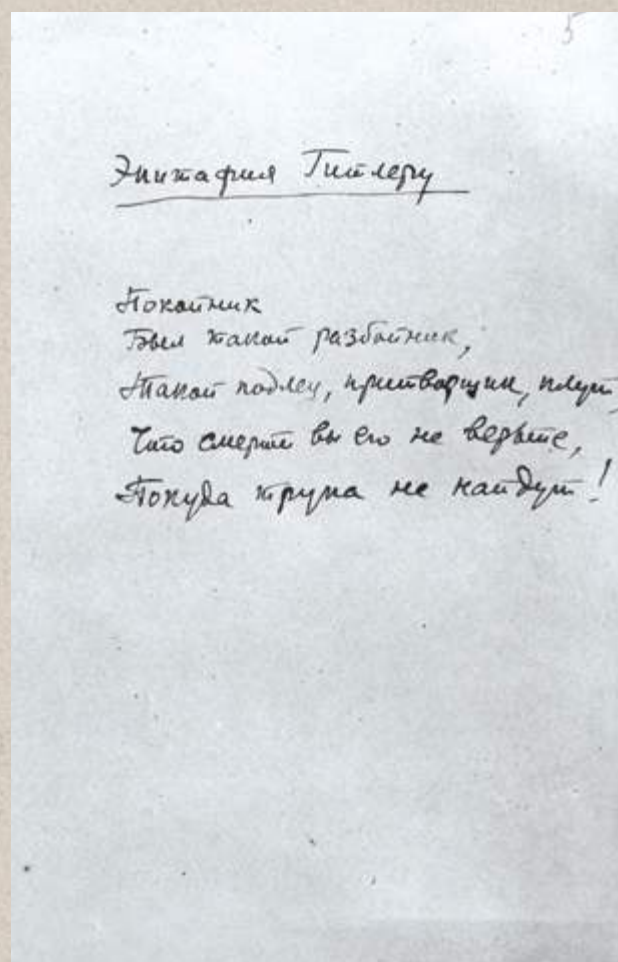 5
Эпитафия Гитлеру
Покойник
Был такой разбойник,
Такой подлец, притворщик, плут,
Что смерти вы его не верьте,
Покуда трупа не найдут!